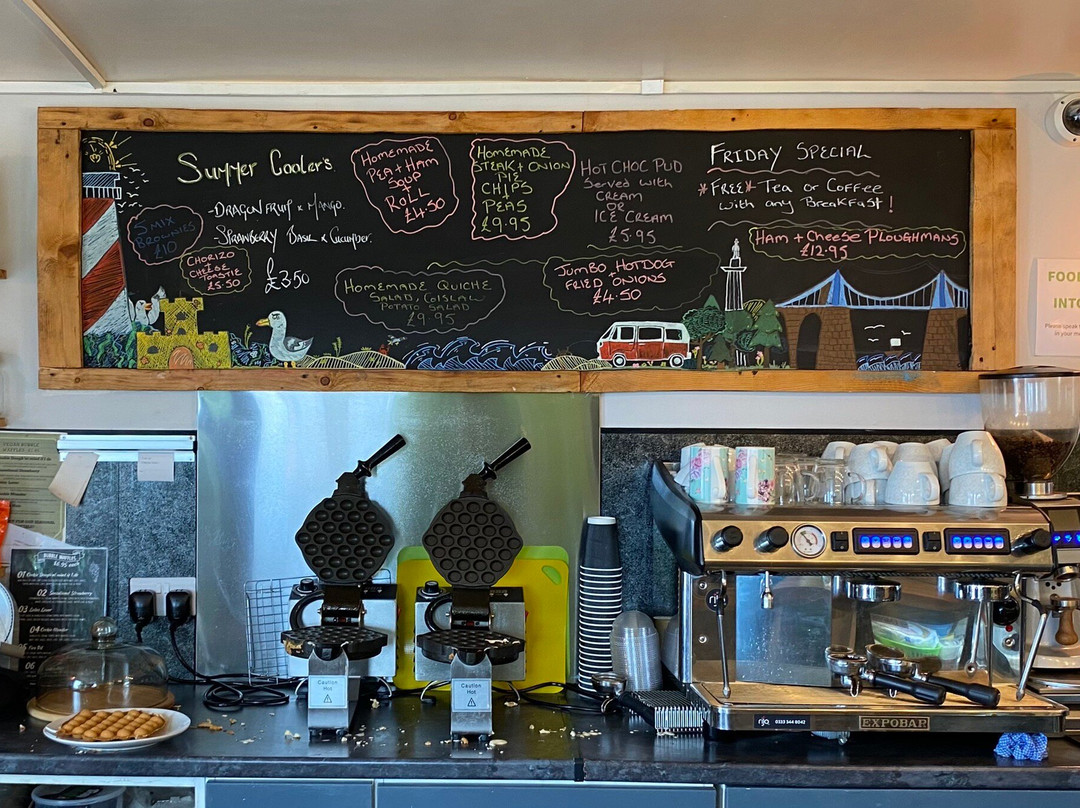 Summer Cooler's
- Dragon Fruit x Mango.
- Strawberry Basil & Cucumber.
£3.50
5 MIX
BROWNIES
£10
CHORIZO
+
CHEESE
TOASTIE
£5.50
HOMEMADE
PEA + HAM
SOUP
+
ROLL
£4.50
HOMEMADE
STEAK + ONION
PIE
CHIPS
+
PEAS
£9.95
HOT CHOC PUD
Served with
CREAM
OR
ICE CREAM
£5.95
FRIDAY SPECIAL
*FREE* Tea or Coffee
with any Breakfast!
Ham + Cheese Ploughmans
£12.95
HOMEMADE QUICHE
SALAD, COLSLAW
POTATO SALAD
£9.95
JUMBO HOTDOG
FRIED ONIONS
£4.50
FOOD
INTO
Please speak
in your
BUBBLE WAFFLES
01
02 Sensational Strawberry
03
04
05
06
Caution
Hot
Caution
Hot
0333 344 8042
EXPOBAR